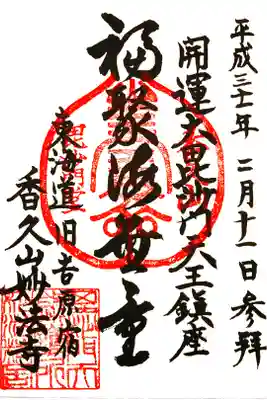 平成三十一年 二月十一日参拝
開運大毘沙门天王鎮座
福聚海無量
東海道旧吉原宿
香久山妙法寺